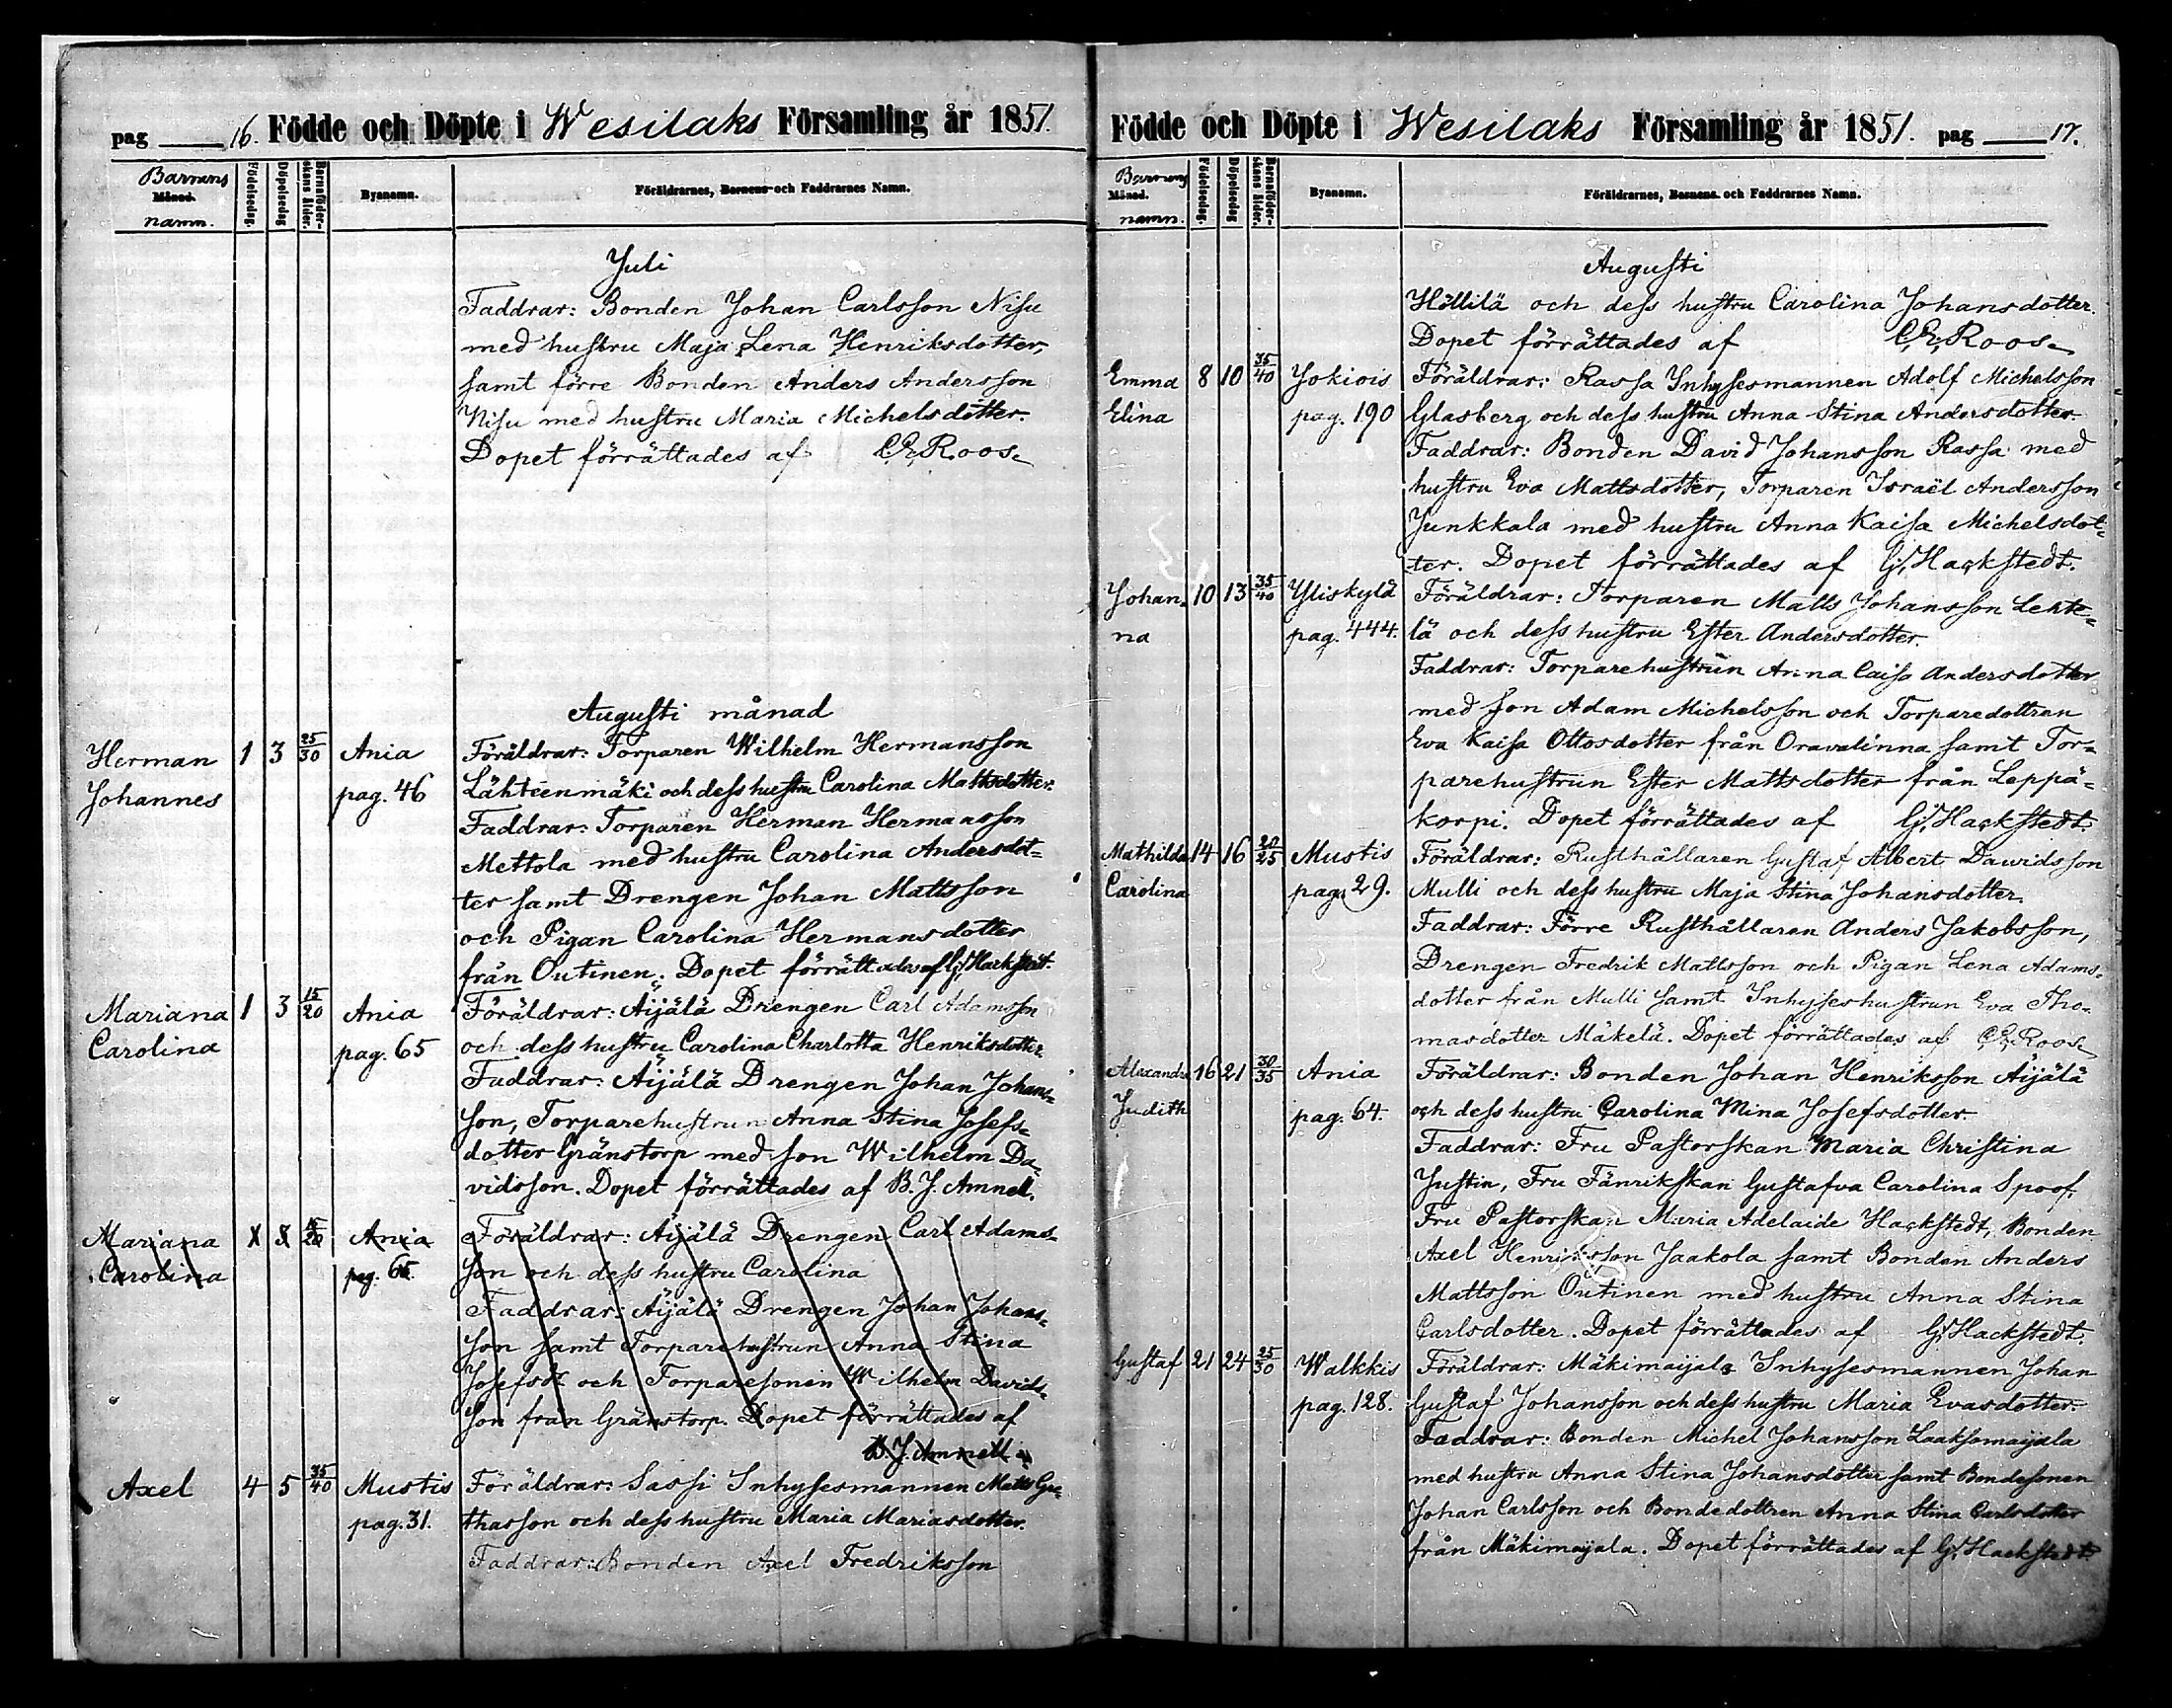 pag 16. Födde och Döpte i Wesilaks Församling år 1851.
Barnens
Månad.
namn.
Födelsedag.
Döpelsedag
Barnaföder-
skans ålder.
Byanamn.
Föräldrarnes, Barnens och Faddrarnes Namn.
Juli
Faddrar: Bonden Johan Carlsson Nisu
med hustru Maja Lena Henriksdotter,
samt förre Bonden Anders Andersson
Nisu med hustru Maria Michelsdotter.
Dopet förrättades af C. E. Roos.
Augusti månad
Herman 1 3 25/30 Ania Föräldrar: Torparen Wilhelm Hermansson
Johannes pag. 46 Lähteenmäki och dess hustru Carolina Mattsdotter.
Faddrar: Torparen Herman Hermansson
Mettola med hustru Carolina Andersdot-
ter samt Drengen Johan Mattsson
och Pigan Carolina Hermansdotter
från Outinen. Dopet förrättades af G. Hackstedt.
Mariana 1 3 15/20 Ania Föräldrar: Äijälä Drengen Carl Adamsson
Carolina pag. 65 och dess hustru Carolina Charlotta Henriksdotter.
Faddrar: Äijälä Drengen Johan Johans-
son, Torparehustrun Anna Stina Josefs-
dotter Gränstorp med son Wilhelm Da-
vidsson. Dopet förrättades af B. J. Amnell.
Mariana 1 3 15/20 Ania Föräldrar: Äijälä Drengen Carl Adams-
Carolina pag. 65. son och dess hustru Carolina
Faddrar: Äijälä Drengen Johan Johans-
son samt Torparehustrun Anna Stina
Josefsd och Torparesonen Wilhelm Davids-
son från Gränstorp. Dopet förrättades af
B. J. Amnell
Axel 4 5 35/40 Mustis Föräldrar: Sassi Inhysesmannen Matts Gre-
pag. 31. thasson och dess hustru Maria Mariasdotter.
Faddrar: Bonden Axel Fredriksson
Födde och Döpte i Wesilaks Församling år 1851. pag 17.
Barnens
Månad.
namn.
Födelsedag.
Döpelsedag
Barnaföder-
skans ålder.
Byanamn.
Föräldrarnes, Barnens och Faddrarnes Namn.
Augusti
Höllilä och dess hustru Carolina Johansdotter.
Dopet förrättades af C. E. Roos.
Emma 8 10 35/40 Jokiois Föräldrar: Rassa Inhysesmannen Adolf Michelsson
Elina pag. 190 Glasberg och dess hustru Anna Stina Andersdotter.
Faddrar: Bonden David Johansson Rassa med
hustru Eva Mattsdotter, Torparen Israël Andersson
Junkkala med hustru Anna Kaisa Michelsdot-
ter. Dopet förrättades af G. Hackstedt.
Johan- 10 13 35/40 Yliskylä Föräldrar: Torparen Matts Johansson Lehte-
na pag. 444. lä och dess hustru Ester Andersdotter.
Faddrar: Torparehustrun Anna Caisa Andersdotter
med son Adam Michelsson och Torparedottren
Eva Kaisa Ottosdotter från Oravalinna samt Tor-
parehustrun Ester Mattsdotter från Leppä-
korpi. Dopet förrättades af G. Hackstedt.
Mathilda 14 16 20/25 Mustis Föräldrar: Rusthållaren Gustaf Albert Dawidsson
Carolina pag. 29. Mulli och dess hustru Maja Stina Johansdotter.
Faddrar: Förre Rusthållaren Anders Jakobsson,
Drengen Fredrik Mattsson och Pigan Lena Adams-
dotter från Mulli samt Inhyseshustrun Eva Tho-
masdotter Mäkelä. Dopet förrättades af C. E. Roos.
Alexandra 16 21 30/35 Ania Föräldrar: Bonden Johan Henriksson Äijälä
Judith pag. 64. och dess hustru Carolina Mina Josefsdotter.
Faddrar: Fru Pastorskan Maria Christina
Justin, Fru Fänrikskan Gustafva Carolina Spoof,
Fru Pastorskan Maria Adelaide Hackstedt, Bonden
Axel Henriksson Jaakola samt Bonden Anders
Mattsson Outinen med hustru Anna Stina
Carlsdotter. Dopet förrättades af G. Hackstedt.
Gustaf 21 24 25/30 Walkkis Föräldrar: Mäkimaijala Inhysesmannen Johan
pag. 128. Gustaf Johansson och dess hustru Maria Evasdotter.
Faddrar: Bonden Michel Johansson Laaksomaijala
med hustru Anna Stina Johansdotter samt Bondesonen
Johan Carlsson och Bondedottren Anna Stina Carlsdotter
från Mäkimaijala. Dopet förrättades af G. Hackstedt.